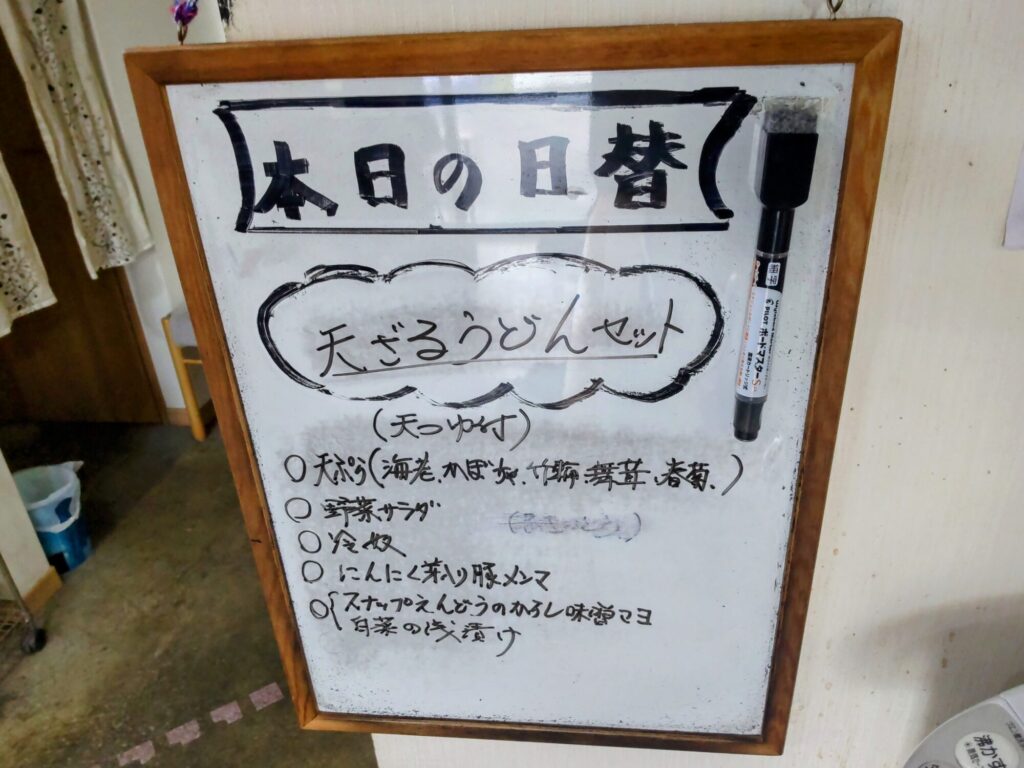 本日の日替
天ざるうどんセット
(天つゆ付)
○天ぷら(海老、かぼちゃ、竹輪、舞茸、春菊、)
○野菜サラダ
○冷奴
○にんにく芽入り豚メンマ
○{スナップえんどうのからし味噌マヨ
白菜の浅漬け
細字
PILOT ボードマスターS
沸かす